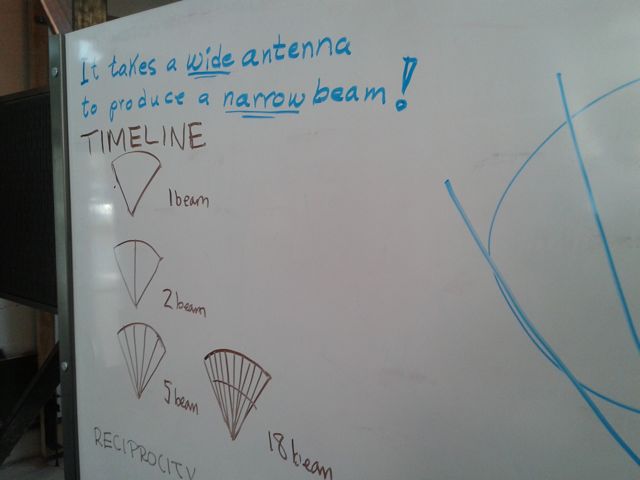 It takes a wide antenna
to produce a narrow beam!
TIMELINE
1 beam
2 beam
5 beam
18 beam
RECIPROCITY